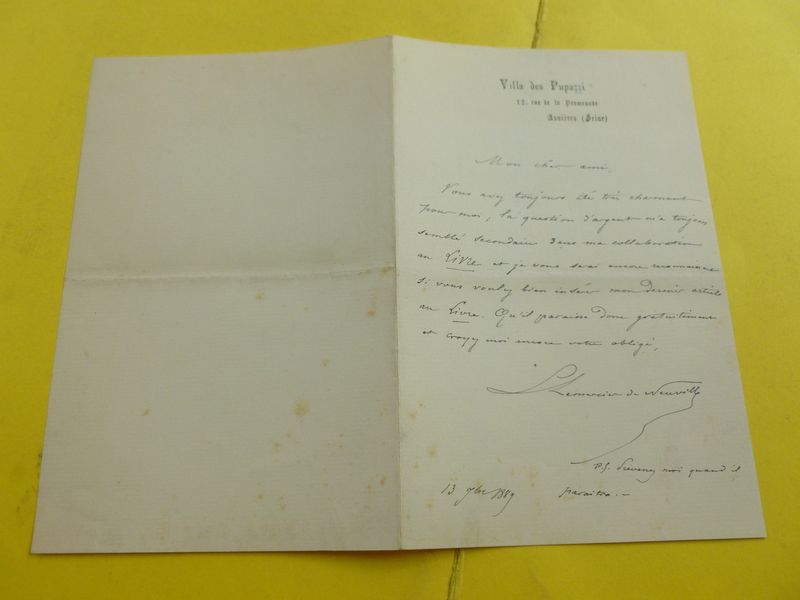 Villa des Pupazzi
12, rue de la Promenade
Asnières (Seine)
Mon cher ami,
Vous avez toujours été très charmant
pour moi, la question d'argent m'a toujours
semblé secondaire dans ma collaboration
au Livre et je vous serai encore reconnaissant
si vous voulez bien insérer mon dernier article
au Livre. Qu'il paraisse donc gratuitement
et croyez moi encore votre obligé,
L Lemercier de Neuville
P.S. Prévenez moi quand il
paraitra.-
13 9bre 1889